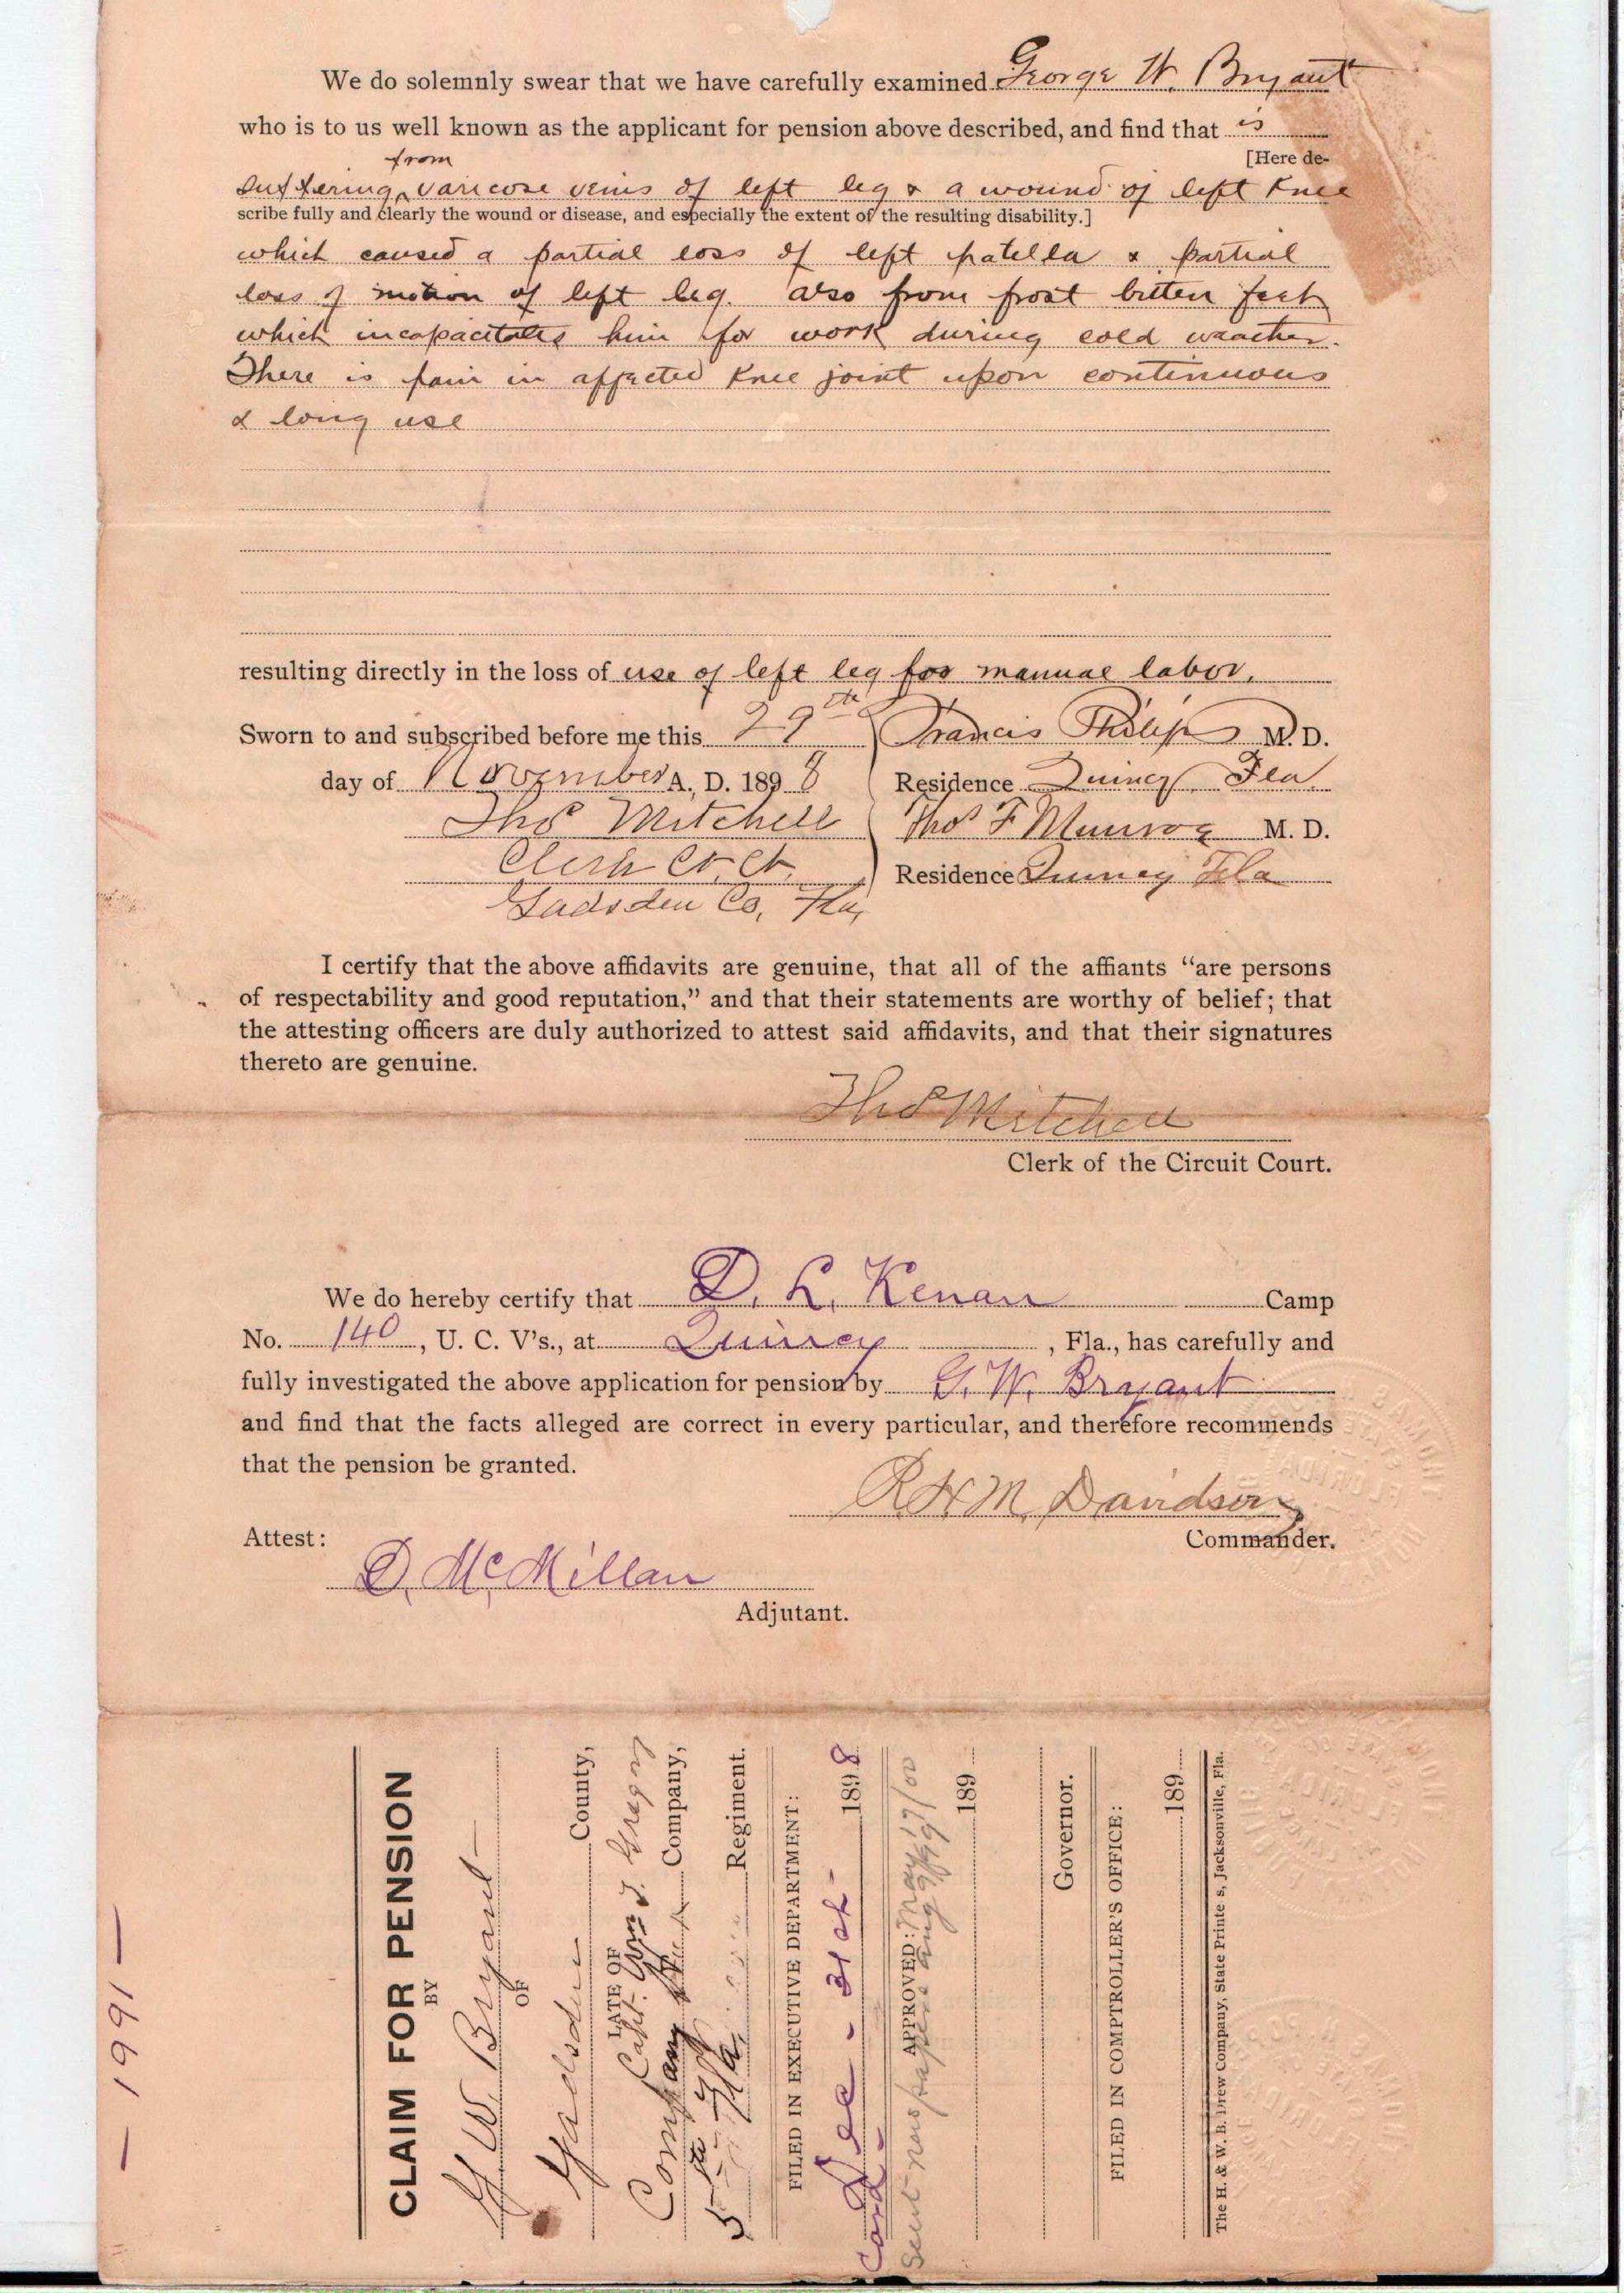 We do solemnly swear that we have carefully examined George W. Bryant
who is to us well known as the applicant for pension above described, and find that is
[Here de-
from
suffering varicose veins of left leg & a wound of left Knee
scribe fully and clearly the wound or disease, and especially the extent of the resulting disability.]
which caused a partial loss of left patella & partial
loss of motion of left leg. also from frost bitten feet
which incapacitates him for work during cold weather.
There is pain in affected Knee joint upon continuous
& long use
resulting directly in the loss of use of left leg for manual labor.
Sworn to and subscribed before me this 29th Francis Philips M. D.
day of November A. D. 1898 Residence Quincy Fla.
Thos Mitchell Thos F Munroe M. D.
Clerk Ct. Ct. Residence Quincy Fla
Gadsden Co, Fla,
I certify that the above affidavits are genuine, that all of the affiants “are persons
of respectability and good reputation,” and that their statements are worthy of belief; that
the attesting officers are duly authorized to attest said affidavits, and that their signatures
thereto are genuine.
Thos Mitchell
Clerk of the Circuit Court.
We do hereby certify that D. L. Kenan Camp
No. 140, U. C. V's., at Quincy, Fla., has carefully and
fully investigated the above application for pension by G. W. Bryant
and find that the facts alleged are correct in every particular, and therefore recommends
that the pension be granted.
R H M Davidson
Commander.
Attest:
D. McMillan
Adjutant.
— 1991 —
CLAIM FOR PENSION
BY
G W Bryant
OF
Gadsden County,
LATE OF
Capt. Wm J. Gregory
Company Company,
5th Fla. Regiment.
FILED IN EXECUTIVE DEPARTMENT:
Dec - 31st - 1898
Card
APPROVED: May 17/00
Sent new papers Aug 9/99
189
Governor.
FILED IN COMPTROLLER'S OFFICE:
189
The H. & W. B. Drew Company, State Printe s, Jacksonville, Fla.